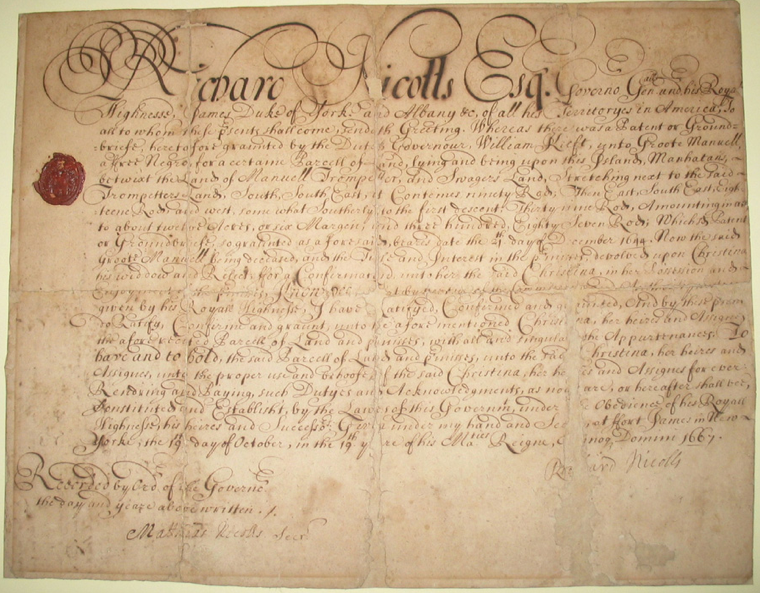 Richard Nicolls Esq. Governo.r Gen.all and his Royall
Highnesse James Duke of Yorke and Albany &c. of all his Territoryes in America, To
all to whom these p.sents shall come, sendeth Greeting. Whereas there was a Patent or Ground=
=briefe, heretofore graunted by the Dutch Governour, William Kieft, unto Groote Manuell
a free Negro, for a certaine Parcell of Land, lying and being upon this Island, Manhatans,
betwixt the Land of Manuell Trompetter, and Swagers Land, Stretching next to the said
Trompetters Land, South, South East, it Conteines ninety Rod; Then East, South East, Eigh=
=teene Rod and west, some what Southerly to the first descent Thirty nine Rod, Amounting in all
to about twelve Acres, or six Margen, and three hundred, Eighty Seven Rod; Which s.d Patent
or Groundbriefe so graunted as aforesaid, beares date the day of December 1644. Now the said
Groote Manuell being deceased, and the Title and Interest in the p.misses devolved upon Christina
his widdow and Relict, for a Confirmac̃on unto her the said Christina, in her Possession and
Enjoyment of the p.misses, Know yee, that by virtue of the Commission and Authority
given by his Royall Highnesse, I have Ratifyed, Confirmed and graunted, And by these p.sents
do Ratify, Confirme and graunt, unto the afore mentioned Christina, her heires and Assignes,
the afore recited Parcell of Land and p.misses, with all and singular the Appurtenances. To
have and to hold, the said Parcell of Land and p.misses, unto the said Christina, her heires and
Assignes, unto the proper use and behoofe of the said Christina, her heires and Assignes for ever.
Rendring and Paying, such Dutyes and Acknowledgments, as now are, or hereafter shall bee,
Constituted and Establisht, by the Lawes of this Governm.t, under the Obedience of his Royall
Highnesse, his heires and Success.rs; Given under my hand and Seale, at Fort James in New
Yorke, the 19.th day of October, in the 19.th yeare of his Ma.ties Reigne, Annoq. Domini 1667.
Richard Nicolls
Recorded by Ord.r of the Governo.r
the day and yeare above written.
Matthias Nicolls Secr.